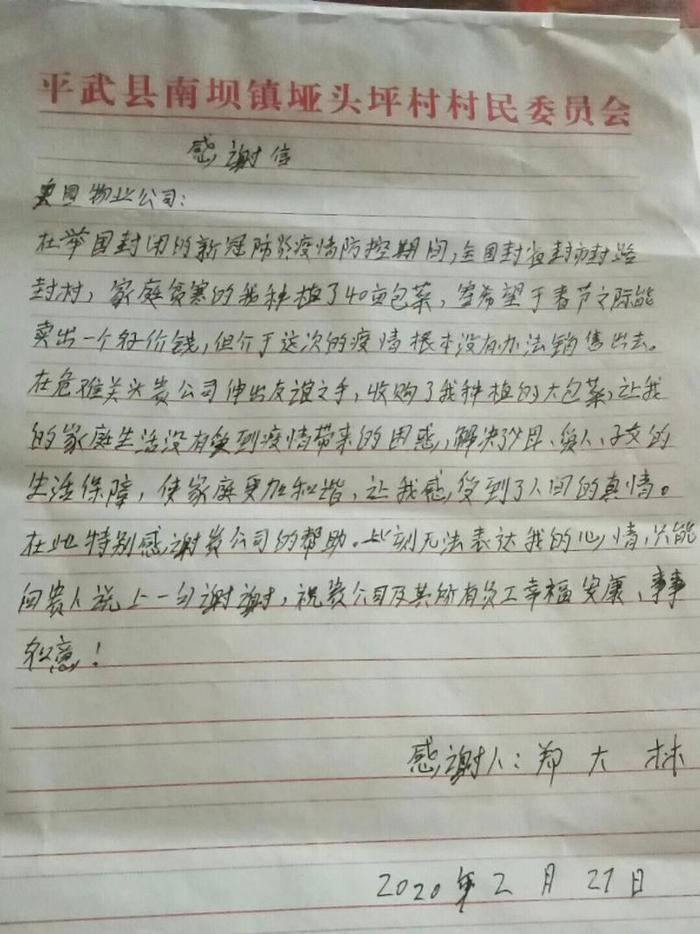 平武县南坝镇垭头坪村村民委员会
感谢信
奥园物业公司：
在举国封闭的新冠肺炎疫情防控期间，全国封省封市封路
封村，家庭贫寒的我种植了40亩包菜，寄希望于春节之际能
卖出一个好价钱，但介于这次的疫情根本没有办法销售出去。
在危难关头贵公司伸出友谊之手，收购了我种植的大包菜，让我
的家庭生活没有受到疫情带来的困惑，解决了父母、爱人、子女的
生活保障，使家庭更加和谐，让我感受到了人间的真情。
在此特别感谢贵公司的帮助。此刻无法表达我的心情，只能
向贵人说上一句谢谢，祝贵公司及其所有员工幸福安康、事事
如意！
感谢人：郑大林
2020年2月21日